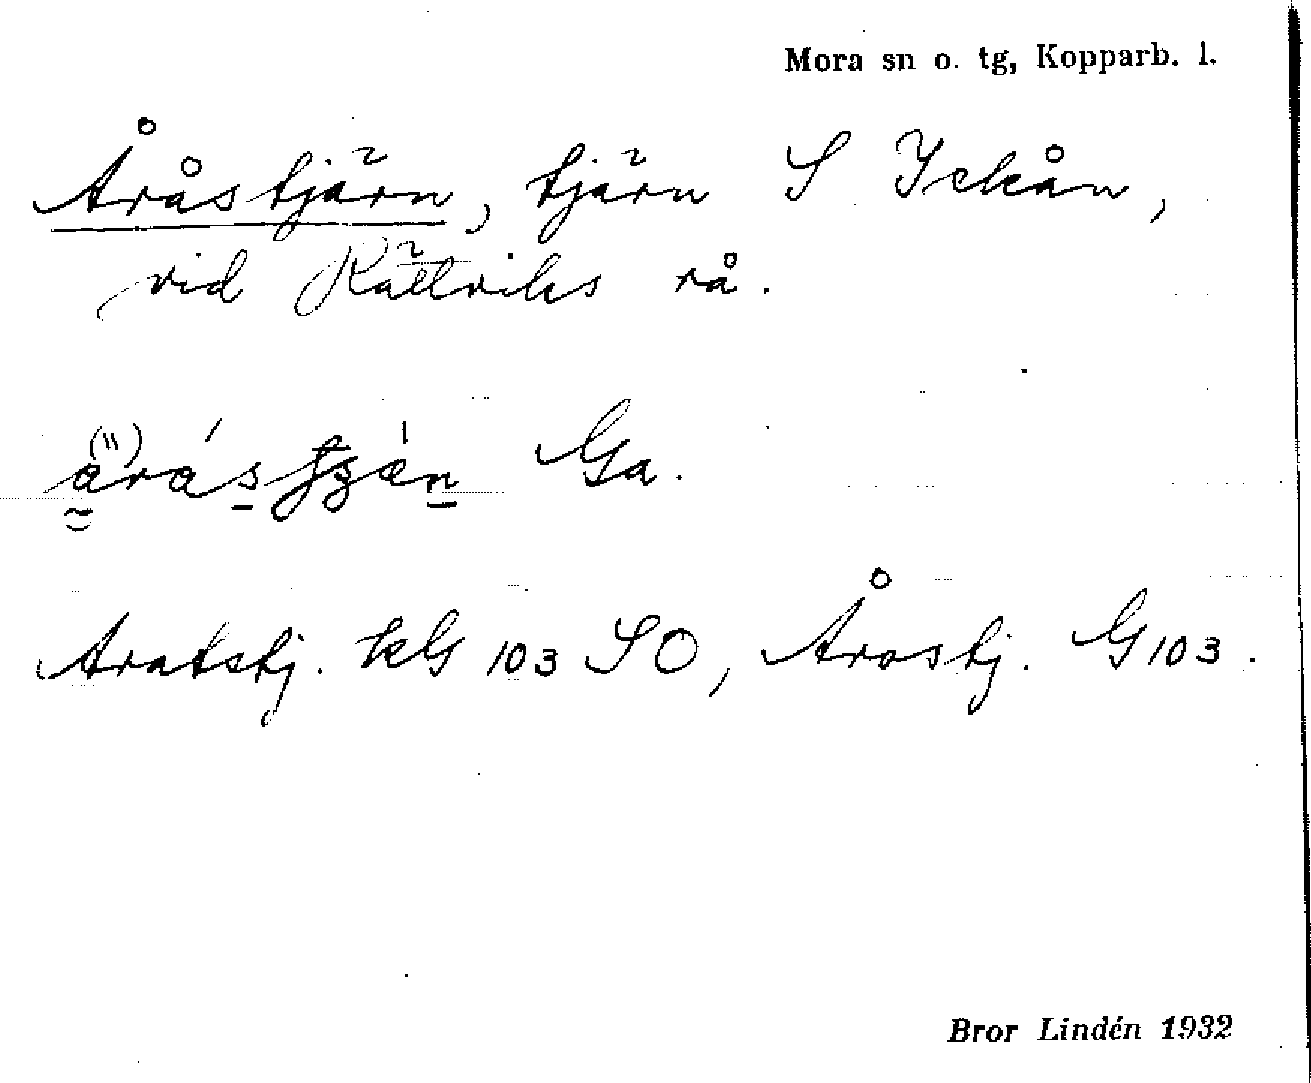 Mora sn o. tg, Kopparb. l.
Åråstjärn, tjärn S Ickån,
vid Rättviks rå.
Ga.
Aratstj. kG 103 SO, Årostj. G 103.
Bror Lindén 1932